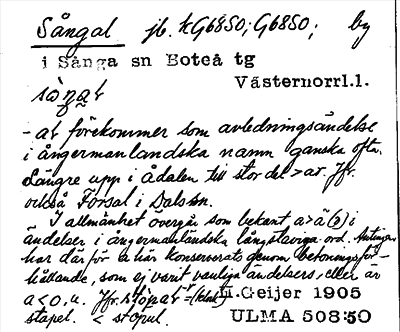 Sångal jb. kG6850; G6850; by
i Sånga sn Boteå tg
Västernorrl.l.
- at förekommer som avledningsändelse
i ångermanländska namn ganska ofta.
Längre upp i ådalen till stor del > ar. Jfr.
också Forsal i Dalssn.
I allmänhet övergår som bekant a > ä (ə) i
ändelser i ångermanländska långstaviga ord. Antingen
har därför a här konserverats genom betoningsför-
hållande, som ej varit vanliga ändelsers, eller är
a < o, u. Jfr.
stapel. < stopul.
H. Geijer 1905
ULMA 508:50